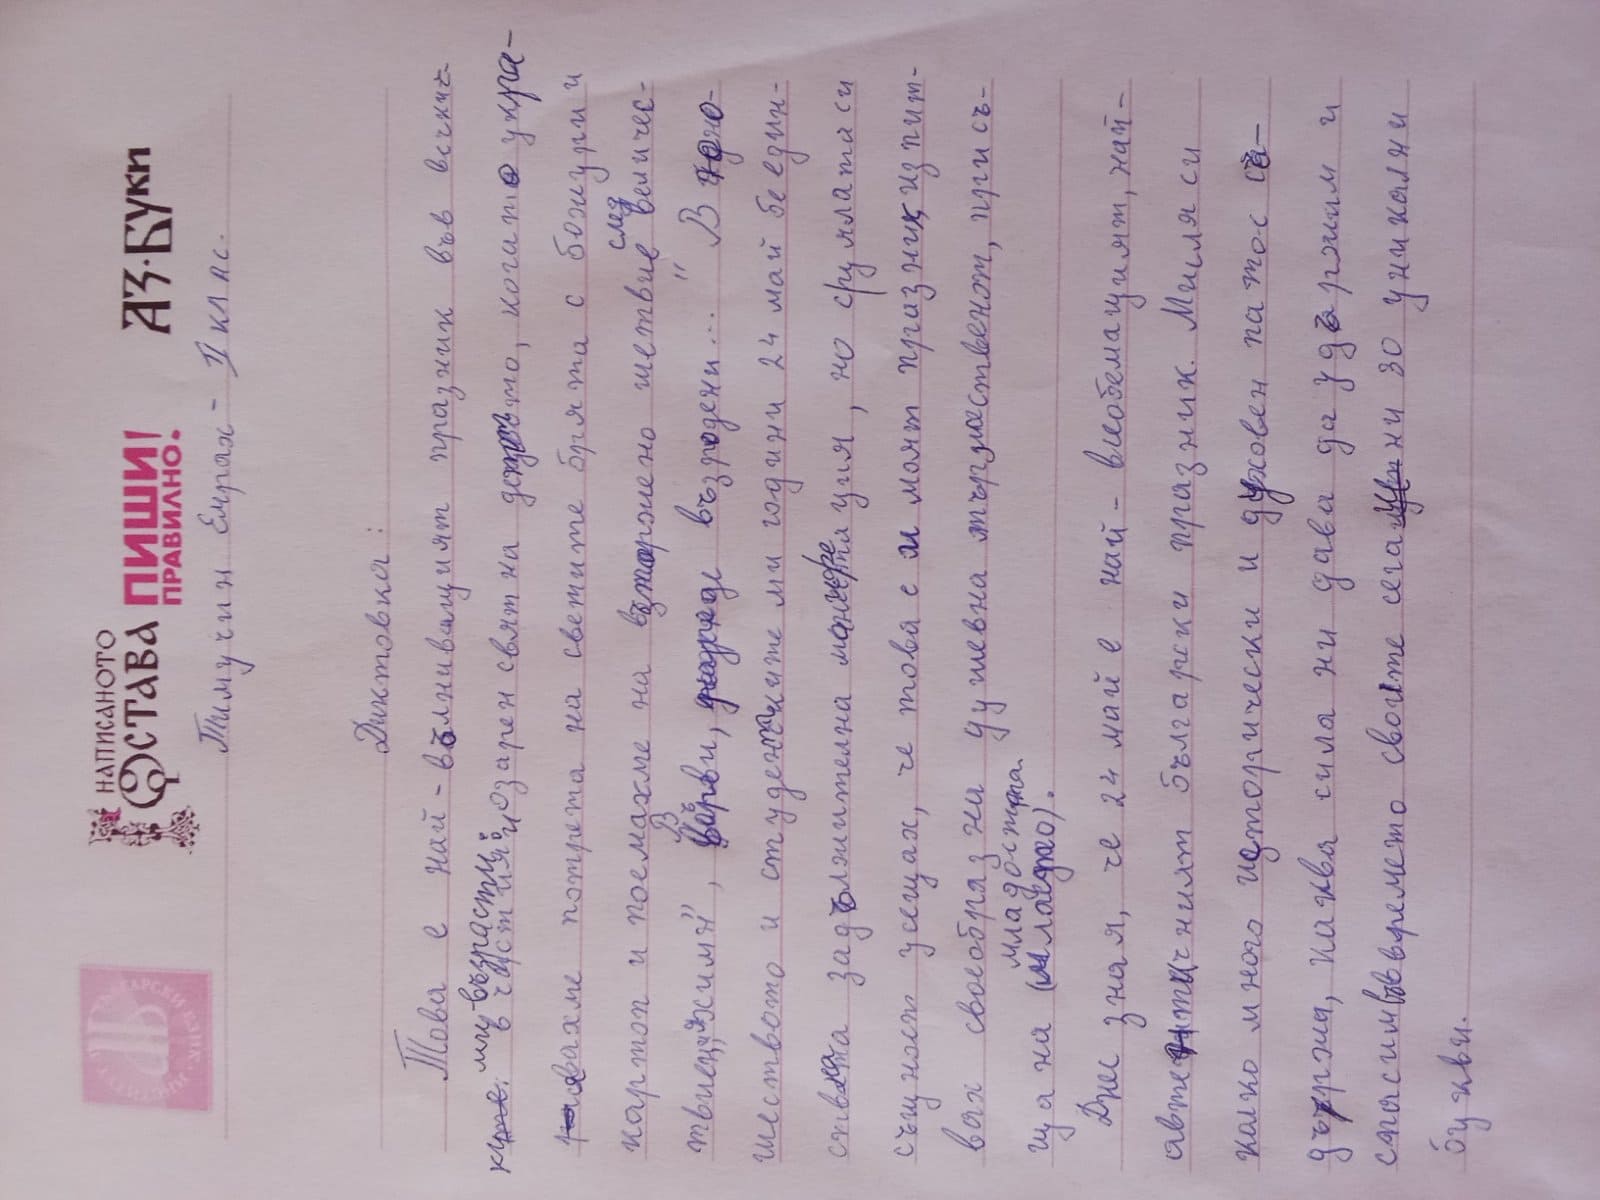 НАПИСАНОТО
ОСТАВА ПИШИ!
ПРАВИЛНО.
АЗ·БУКИ
Тимучин Емрах - II клас.
Диктовка:
Това е най-вълнуващият празник във всички
ми възрасти: в
и озарен свят на детството, когато укра-
вахме портрета на светите братя с божури и
картон и поемахме на възторжено шествие след величес-
твения химн „Върви, народе възродени..." В юно-
шеството и студентските ми години 24 май бе един-
ствената задължителна манифестация, но сърцата си
същност усещах, че това е и моят празник, изпит-
вах своеобразна душевна тържественост, присъ-
ща на младостта.
(младжо).
Днес зная, че 24 май е най-внеобемащият, най-
автентичният български празник. Миля си
колко много исторически и духовен патос съ-
държа, каква сила ни дава да удържим и
спасим във времето своите сегашни 30 уникални
букви.